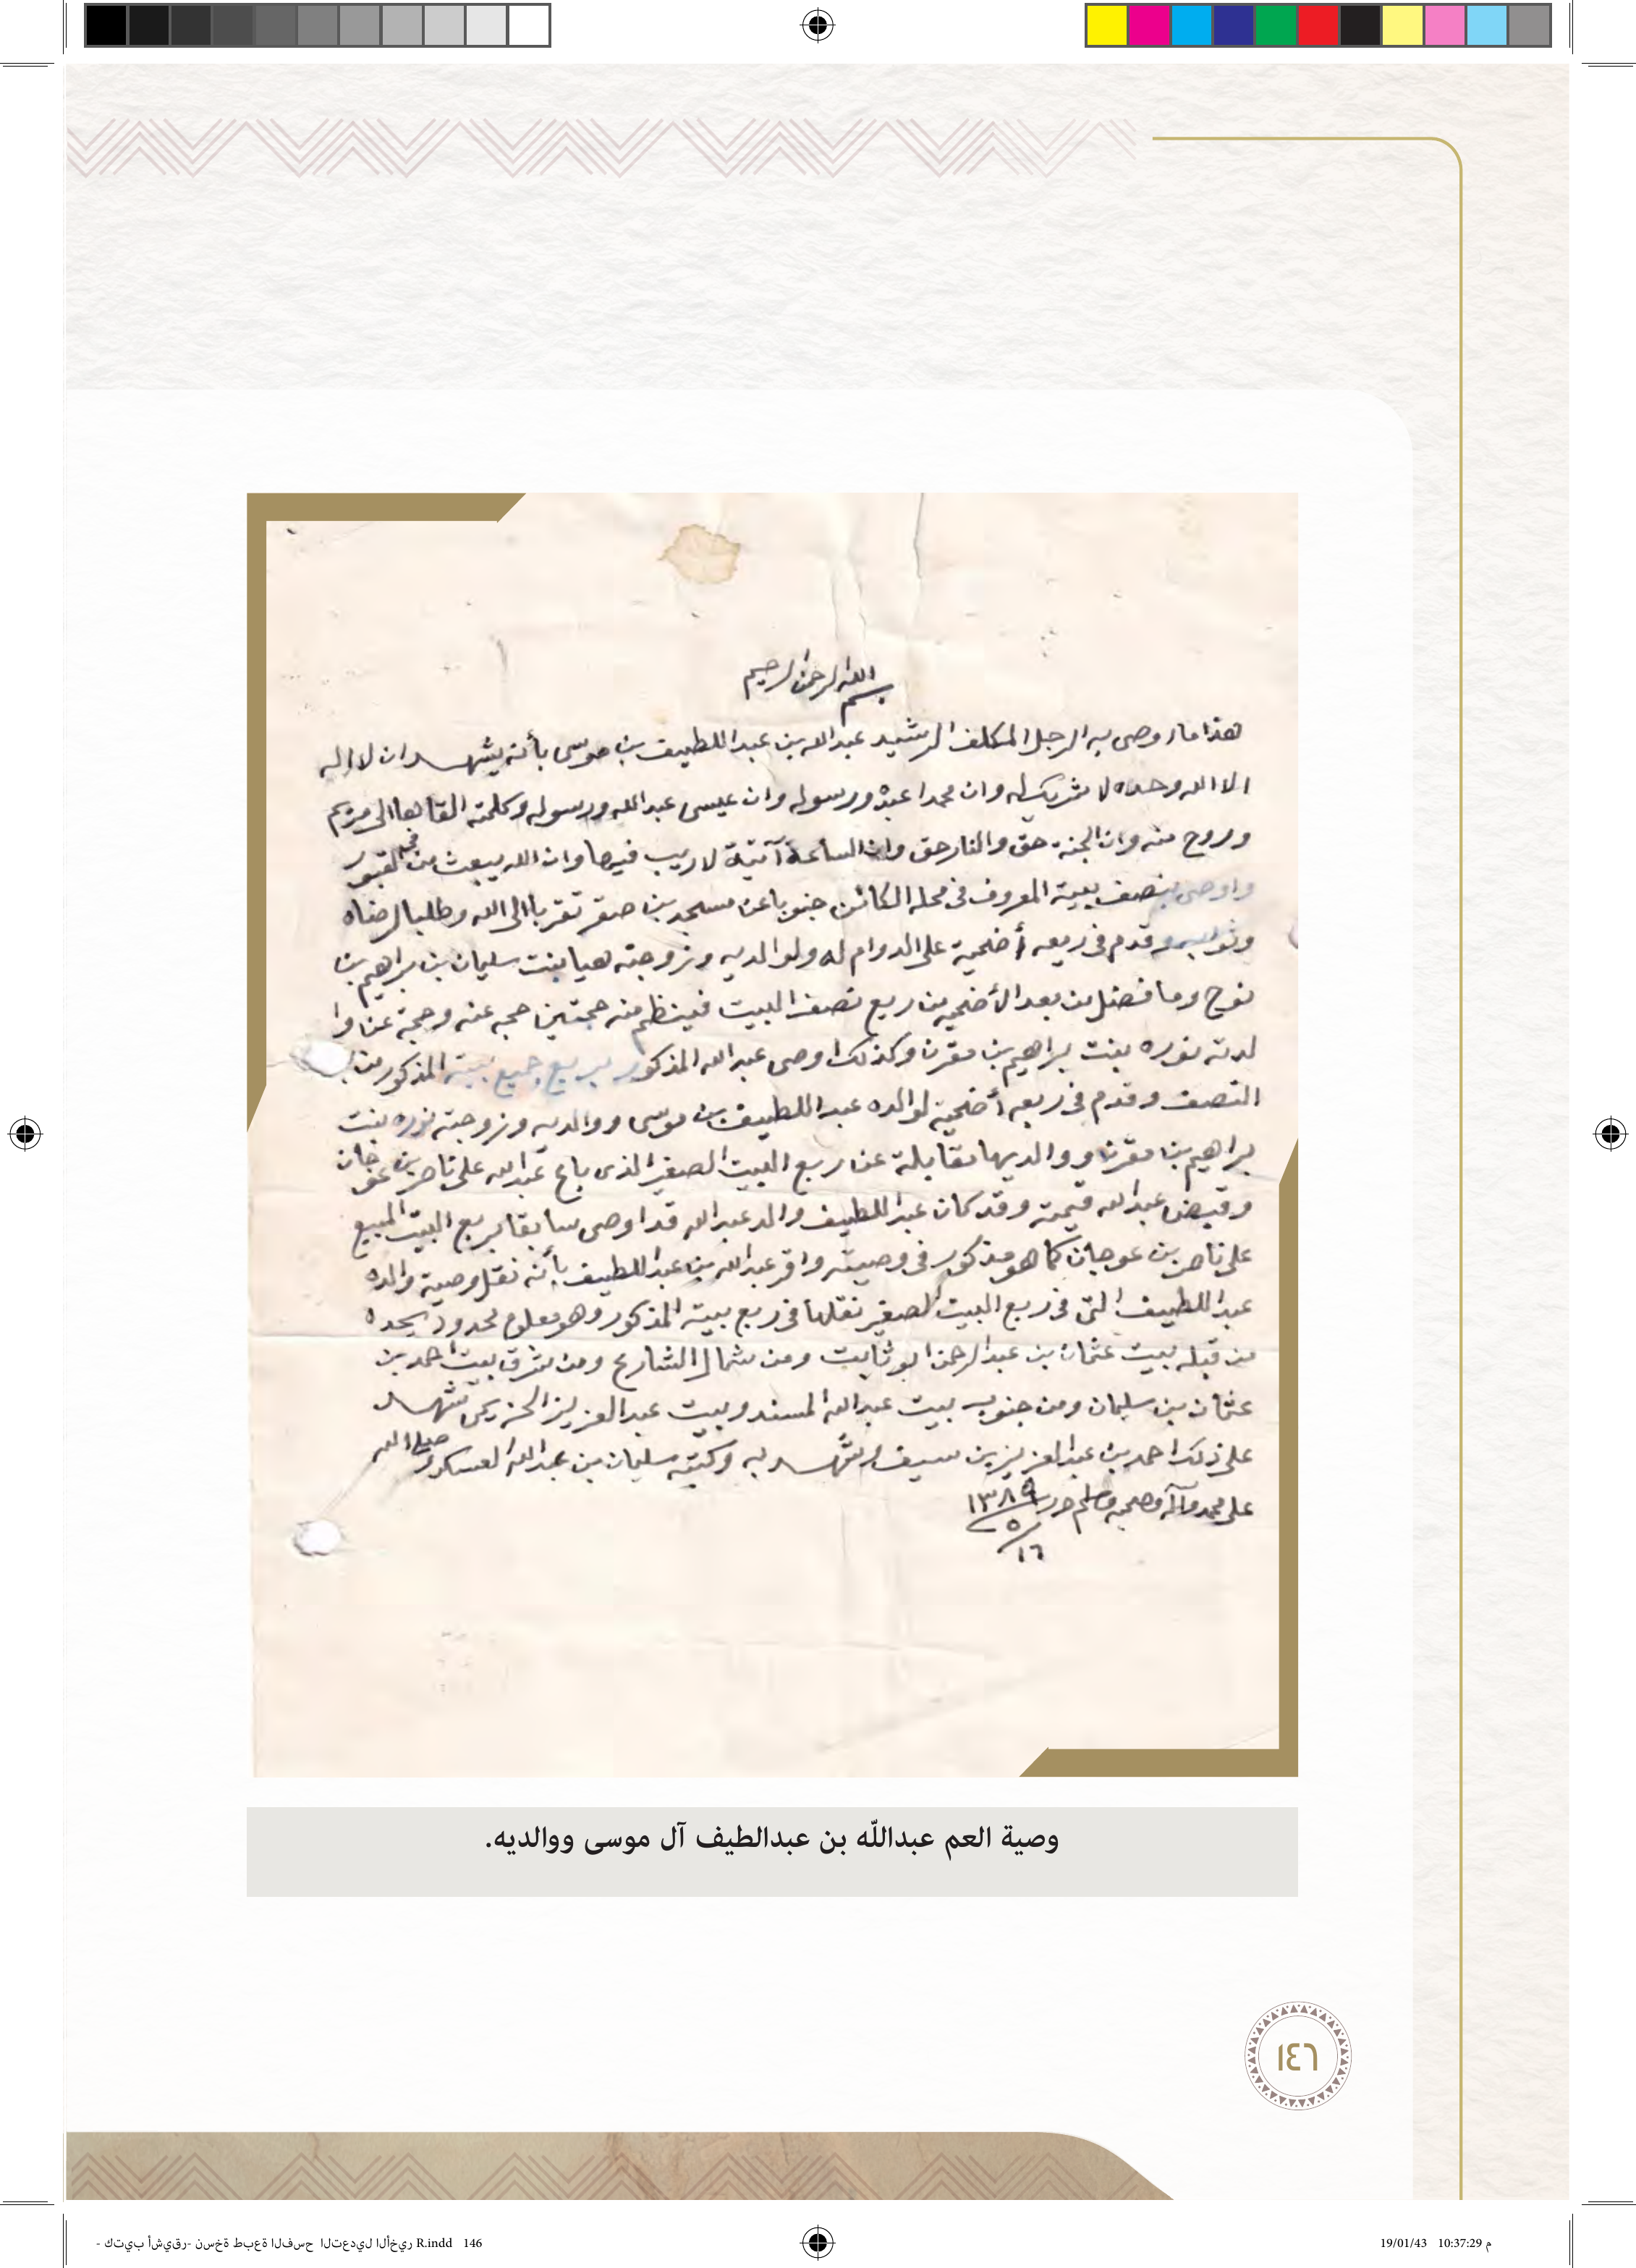 بسم الله الرحمن الرحيم
هذا ما اوصى به الرجل المكلف الرشيد عبدالله بن عبداللطيف بن موسى بأنه يشهد ان لا اله
الا الله وحده لا شريك له وان محمدا عبده ورسوله وان عيسى عبدالله ورسوله وكلمته القاها الى مريم
وروح منه وان الجنة حق والنار حق وان الساعة آتية لا ريب فيها وان الله يبعث من في القبور
واوصى بنصف بيته المعروف في محله الكائن جنوبا عن مسجد بن صقر تقربا الى الله وطلبا لرضاه
وثوابه وقدم في ريعه أضحية على الدوام له ولوالديه وزوجته هيا بنت سليمان بن براهيم بن
نوح وما فضل من بعد الأضحيه من ريع نصف البيت فينظم منه حجتين حجه عنه وحجة عن وا
لدته نوره بنت براهيم بن مقرن وكذلك اوصى عبدالله المذكور بربع جميع بيته المذكور من
النصف وقدم في ريعه أضحية لوالده عبداللطيف بن موسى ووالديه وزوجته نوره بنت
براهيم بن مقرن ووالديها مقابلة عن ربع البيت الصغير الذى باع عبدالله على ناصر بن عوجان
وقبض عبدالله قيمته وقد كان عبداللطيف والد عبدالله قد اوصى سابقا بربع البيت المبيع
على ناصر بن عوجان كما هو مذكور في وصيته واقر عبدالله بن عبداللطيف بأنه نقل وصية والده
عبداللطيف التى في ربع البيت الصغير نقلها في ربع بيته المذكور وهو معلوم محدود يحده
من قبله بيت عثمان بن عبدالرحمن ابوثابت ومن شمال الشارع ومن شرق بيت احمد بن
عثمان بن سليمان ومن جنوب بيت عبدالله المسند وبيت عبدالعزيز الحزيمى شهد
على ذلك احمد بن عبدالعزيز بن سيف وشهد به وكتبه سليمان بن عبدالله العسكر وصلى الله
على محمد وآله وصحبه وسلم حرر ١٣٨٩
٥
١٦
وصية العم عبدالله بن عبدالطيف آل موسى ووالديه.
١٤٦
- كتيب أشيقر- نسخة طبعة الفسح التعديل الأخير R.indd 146
19/01/43 10:37:29 م